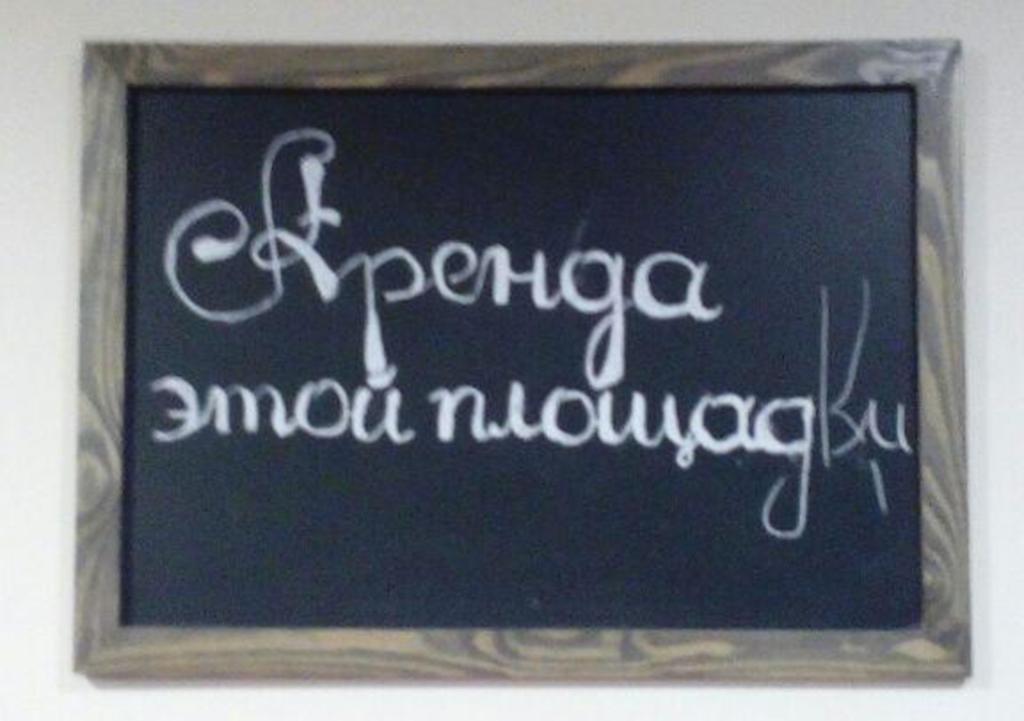 Аренда
этой площадки